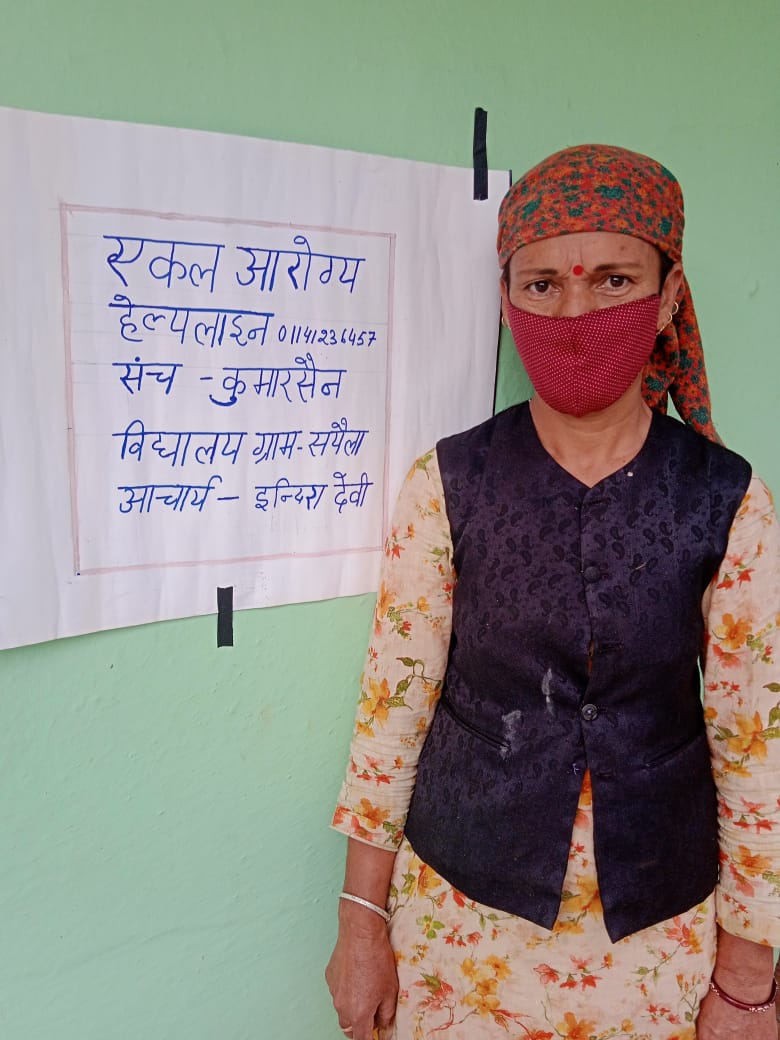 एकल आरोग्य
हेल्पलाइन 01141236457
संच - कुमारसैन
विद्यालय ग्राम-
आचार्य - देवी